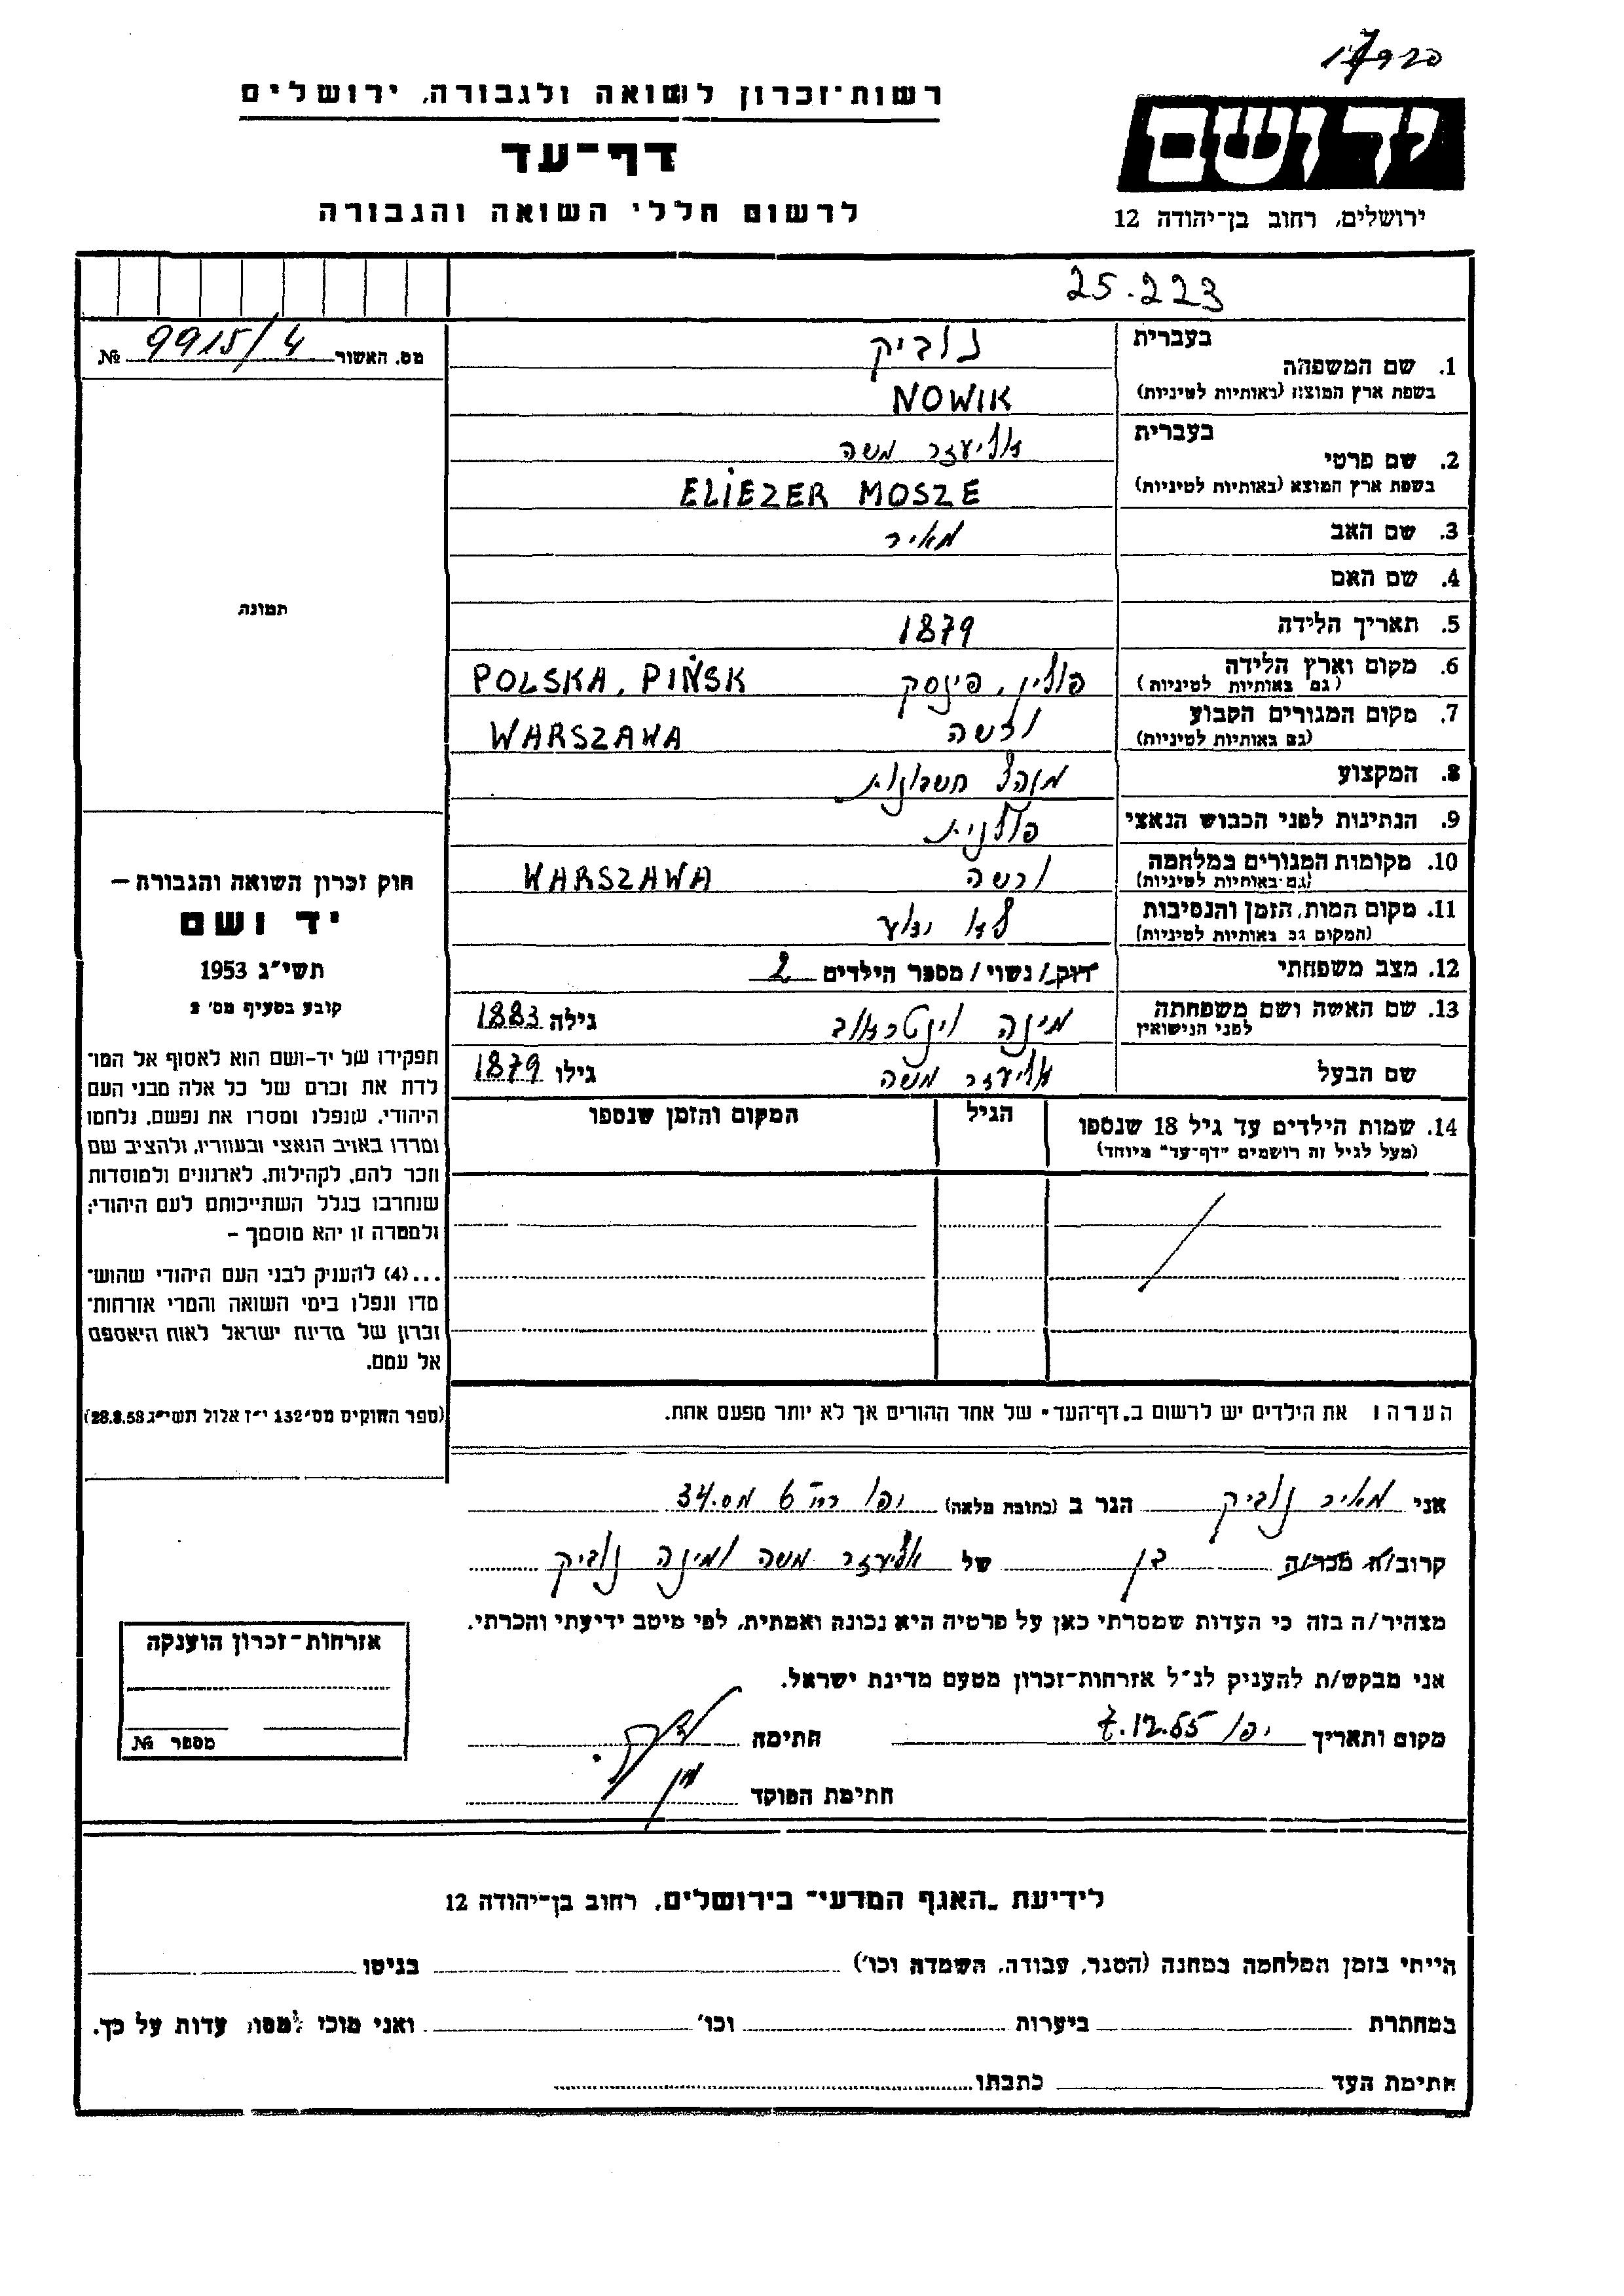 17920
רשות־זכרון לשואה ולגבורה, ירושלים
דף־עד
לרשום חללי השואה והגבורה
יד ושם
ירושלים, רחוב בן־יהודה 12
25.223
מס. האשור 9915/4 №
בעברית נוביק
1. שם המשפחה
בשפת ארץ המוצא (באותיות לטיניות) NOWIK
בעברית אליעזר משה
2. שם פרטי
בשפת ארץ המוצא (באותיות לטיניות) ELIEZER MOSZE
3. שם האב מאיר
4. שם האם
5. תאריך הלידה 1879
6. מקום וארץ הלידה פולין, פינסק POLSKA, PIŃSK
(גם באותיות לטיניות)
7. מקום המגורים הקבוע ורשה WARSZAWA
(גם באותיות לטיניות)
8. המקצוע מנהל חשבונות
9. הנתינות לפני הכבוש הנאצי פולנית
10. מקומות המגורים במלחמה ורשה WARSZAWA
(גם באותיות לטיניות)
11. מקום המות, הזמן והנסיבות לא ידוע
(המקום גם באותיות לטיניות)
12. מצב משפחתי רווק/נשוי/מספר הילדים 2
13. שם האשה ושם משפחתה מינה וינטראוב גילה 1883
לפני הנישואין
שם הבעל אליעזר משה גילו 1879
14. שמות הילדים עד גיל 18 שנספו הגיל המקום והזמן שנספו
(מעל לגיל זה רושמים "דף־עד" מיוחד)
תמונה
חוק זכרון השואה והגבורה –
יד ושם
תשי"ג 1953
קובע בסעיף מס' 2
תפקידו של יד-ושם הוא לאסוף אל המו־
לדת את זכרם של כל אלה מבני העם
היהודי, שנפלו ומסרו את נפשם, נלחמו
ומרדו באויב הנאצי ובעוזריו, ולהציב שם
וזכר להם, לקהילות, לארגונים ולמוסדות
שנחרבו בגלל השתייכותם לעם היהודי;
ולמטרה זו יהא מוסמך –
...(4) להעניק לבני העם היהודי שהוש־
מדו ונפלו בימי השואה והמרי אזרחות־
זכרון של מדינת ישראל לאות היאספם
אל עמם.
(ספר החוקים מס' 132 י"ז אלול תשי"ג 28.8.53)
הערה: את הילדים יש לרשום ב"דף־העד" של אחד ההורים אך לא יותר מפעם אחת.
אני מאיר נוביק הגר ב (כתובת מלאה) יפו רח' 6 מס. 34
קרוב/ה מכר/ה בן של אליעזר משה ומינה נוביק
מצהיר/ה בזה כי העדות שמסרתי כאן על פרטיה היא נכונה ואמתית, לפי מיטב ידיעתי והכרתי.
אני מבקש/ת להעניק לנ"ל אזרחות־זכרון מטעם מדינת ישראל.
מקום ותאריך יפו 7.12.55 חתימה
חתימת הפוקד
אזרחות־זכרון הוענקה
מספר №
לידיעת "האגף המדעי" בירושלים, רחוב בן־יהודה 12
הייתי בזמן המלחמה במחנה (הסגר, עבודה, השמדה וכו') בגיטו
במחתרת ביערות וכו' ואני מוכן למסור עדות על כך.
חתימת העד כתבתו